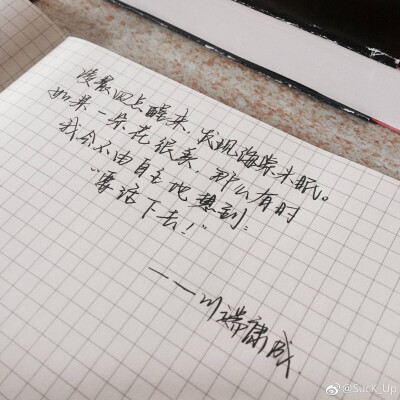 凌晨四点醒来,发现海棠未眠。
如果一朵花很美,那么有时
我会不由自主地想到:
“要活下去!”
———川端康成.
@SucK_Up